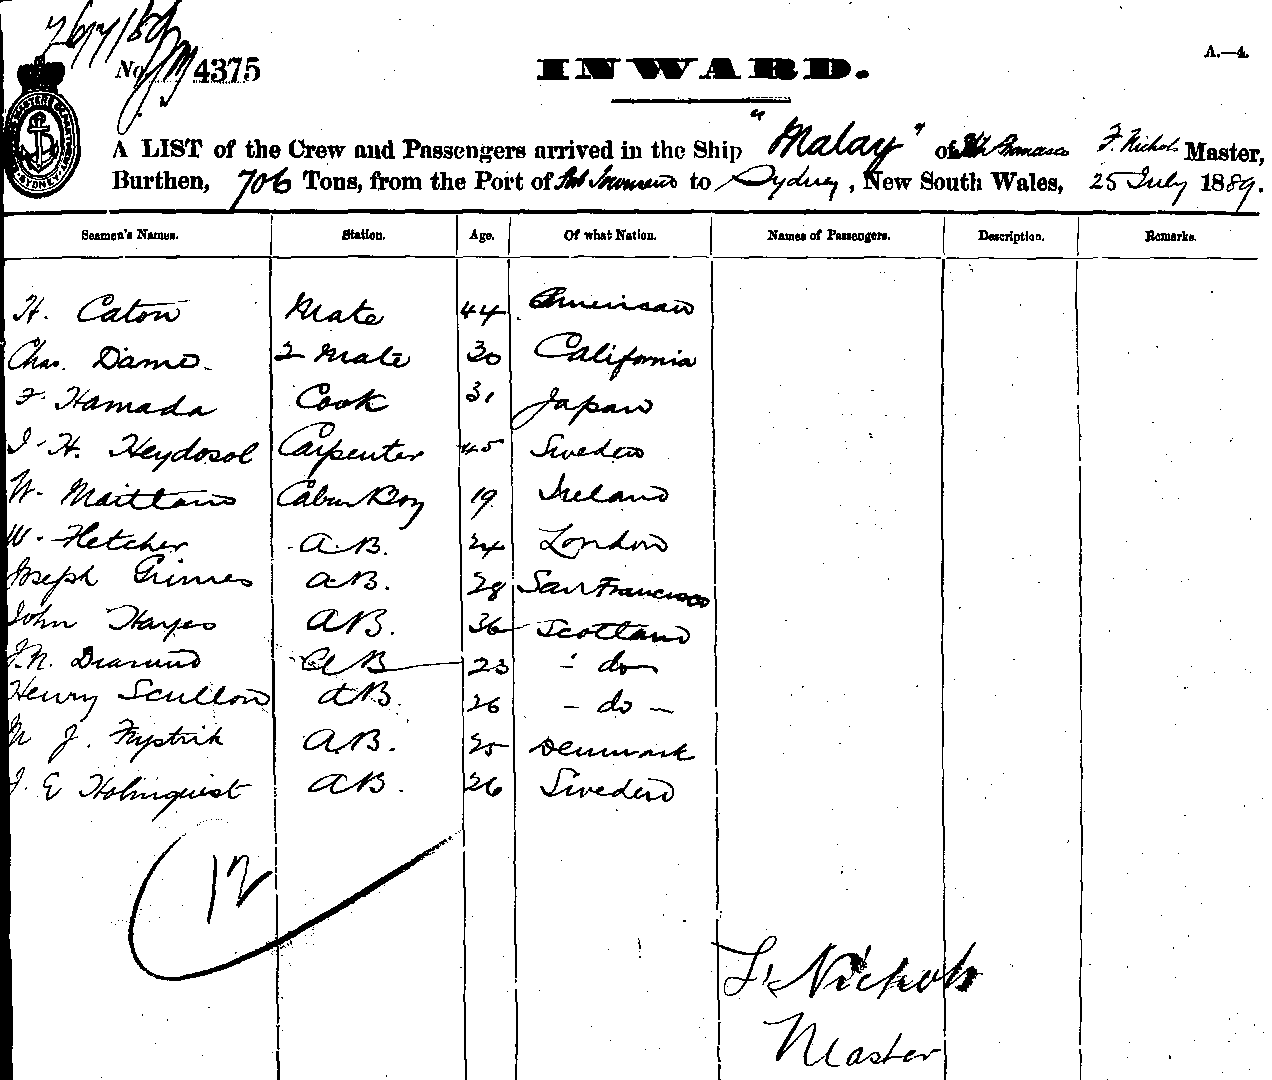 No 4375
INWARD.
A.—4.
A LIST of the Crew and Passengers arrived in the Ship "Malay" of San Francisco F. Nichols Master,
Burthen, 706 Tons, from the Port of to Sydney, New South Wales, 25 July 1889.
Seamen's Names. Station. Age. Of what Nation. Names of Passengers. Description. Remarks.
H. Caton Mate 44 American
Chas. Dame 2 Mate 30 California
F. Hamada Cook 31 Japan
J. H. Heydosol Carpenter 45 Sweden
W. Maitland Cabin Boy 19 Ireland
W. Fletcher A.B. 24 London
Joseph Grimes A.B. 28 San Francisco
John Hayes A.B. 36 Scotland
A B 23 - do -
Henry Scullon A.B. 26 - do -
J. A.B. 25 Denmark
J. E Holmquist A.B. 26 Sweden
12
F. Nichols
Master